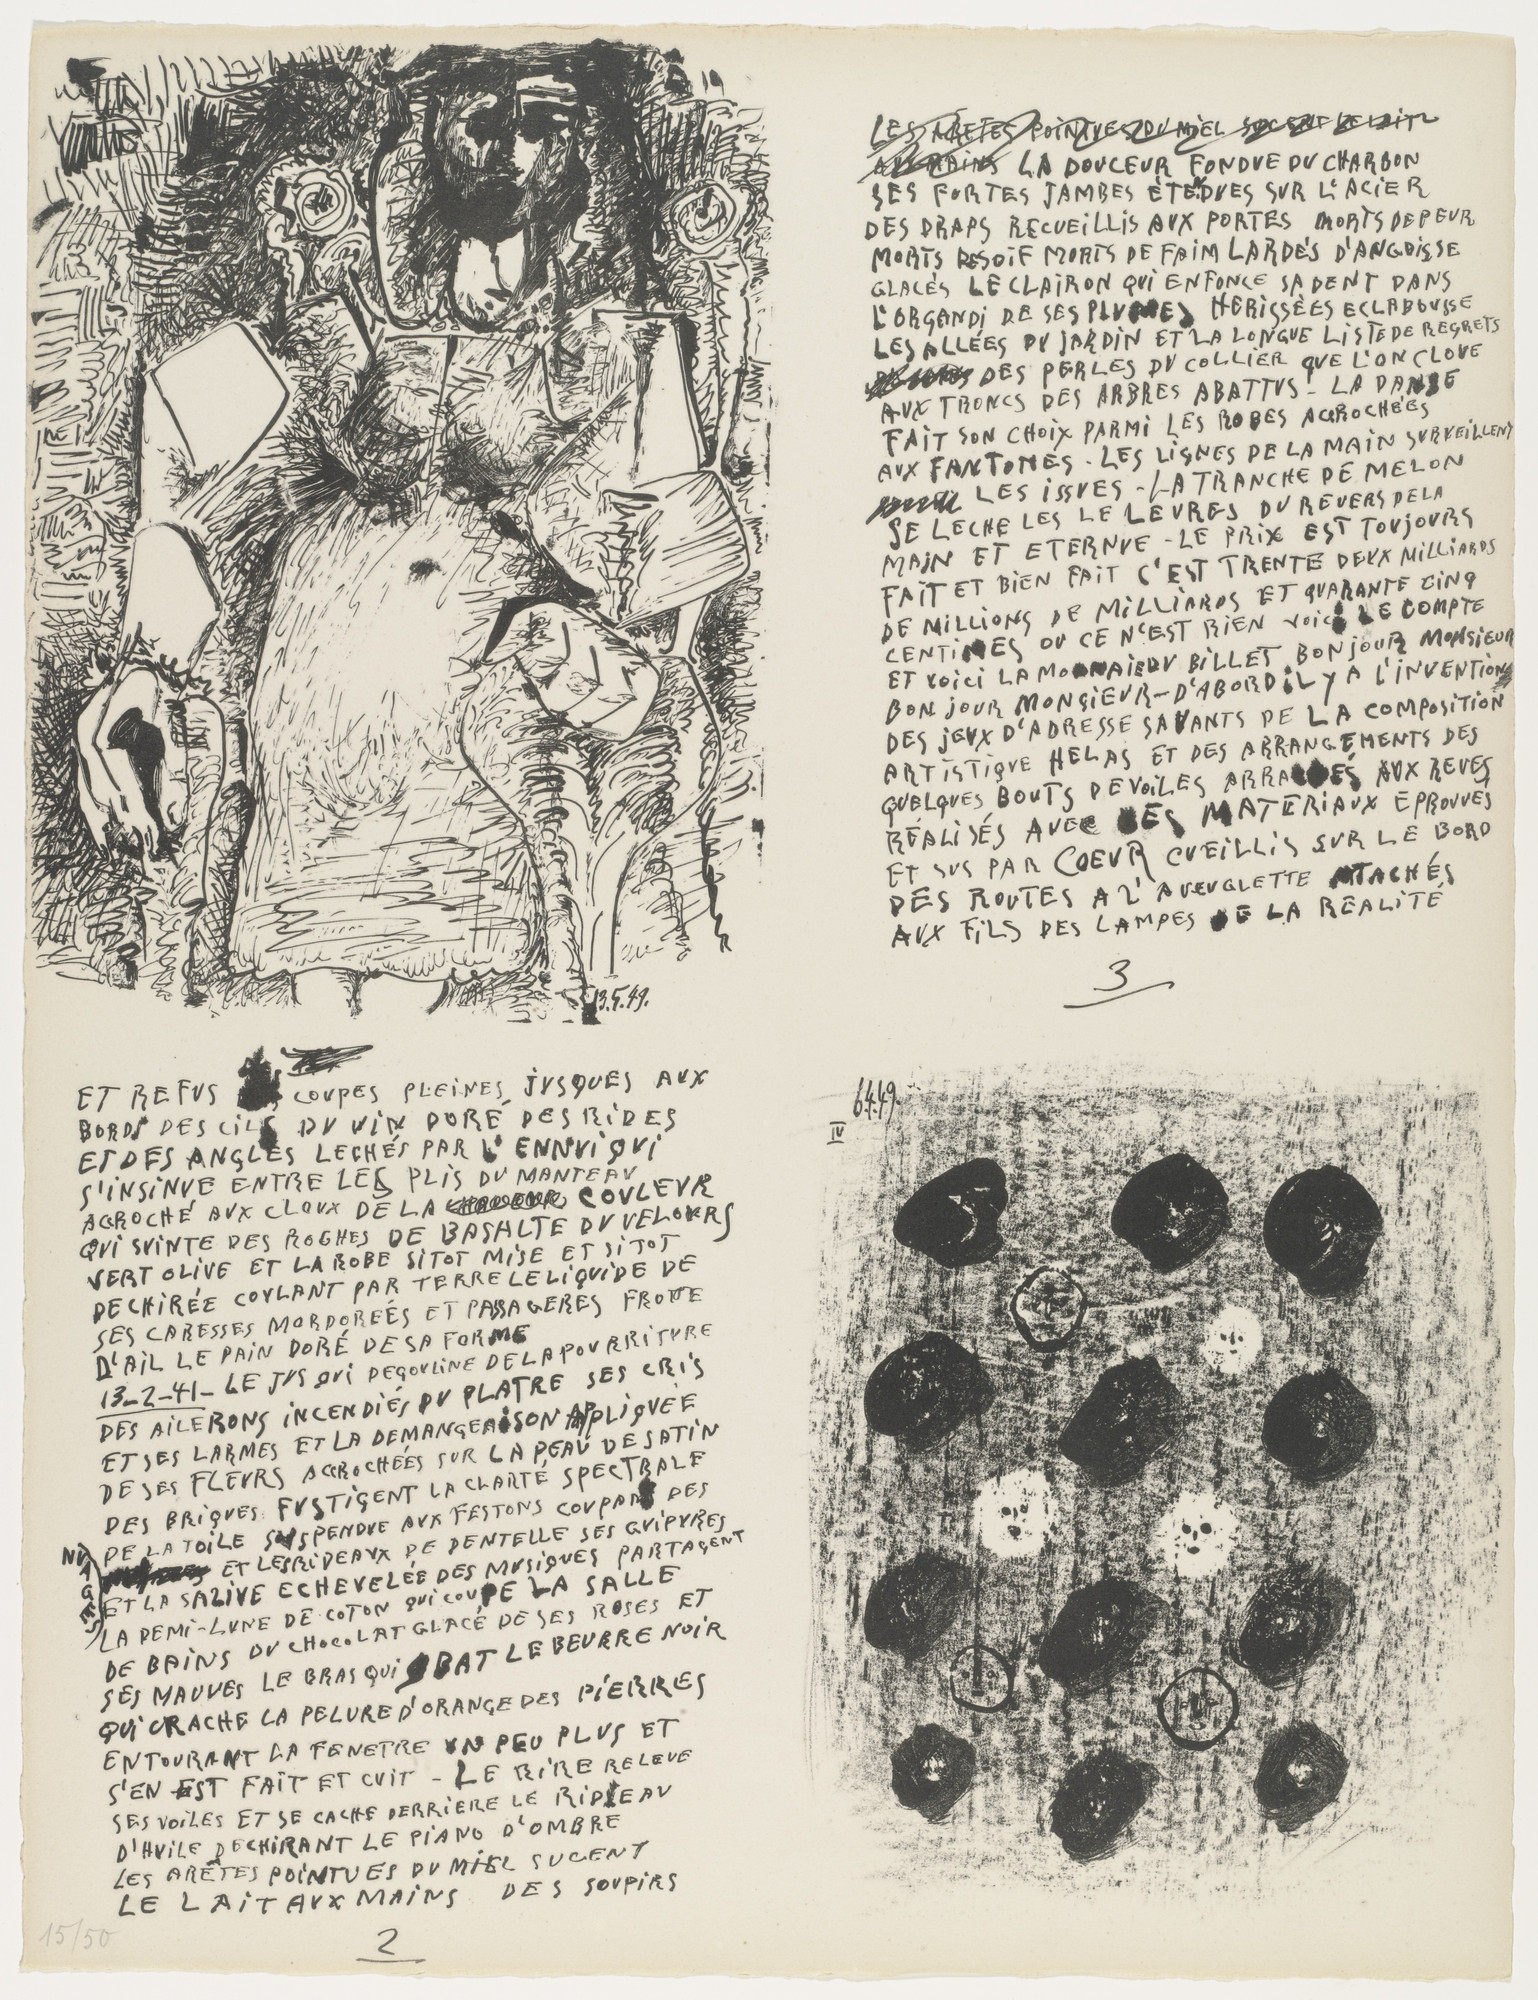 13.5.49.
LES ARÊTES POINTUES DU MIEL SUCENT LE LAIT
AUX MAINS LA DOUCEUR FONDUE DU CHARBON
SES FORTES JAMBES ÉTEDUES SUR L'ACIER
DES DRAPS RECUEILLIS AUX PORTES MORTS DE PEUR
MORTS DE SOIF MORTS DE FAIM LARDÉS D'ANGOISSE
GLACÉS LE CLAIRON QUI ENFONCE SA DENT DANS
L'ORGANDI DE SES PLUMES HERISSÉES ECLABOUSSE
LES ALLÉES DU JARDIN ET LA LONGUE LISTE DE REGRETS
DES PERLES DU COLLIER QUE L'ON CLOUE
AUX TRONCS DES ARBRES ABATTUS - LA DANSE
FAIT SON CHOIX PARMI LES ROBES ACROCHÉES
AUX FANTOMES - LES LIGNES DE LA MAIN SURVEILLENT
LES ISSUES - LA TRANCHE DE MELON
SE LECHE LES LE LEVRES DU REVERS DE LA
MAIN ET ETERNUE - LE PRIX EST TOUJOURS
FAIT ET BIEN FAIT C'EST TRENTE DEUX MILLIARDS
DE MILLIONS DE MILLIARDS ET QUARANTE CINQ
CENTIMES OU CE N'EST RIEN VOICI LE COMPTE
ET VOICI LA MONNAIE DU BILLET BONJOUR MONSIEUR
BONJOUR MONSIEUR - D'ABORD IL Y A L'INVENTION
DES JEUX D'ADRESSE SAVANTS DE LA COMPOSITION
ARTISTIQUE HELAS ET DES ARRANGEMENTS DES
QUELQUES BOUTS DE VOILES ARRACHÉS AUX REVES
RÉALISÉS AVEC DES MATERIAUX EPROUVÉS
ET SUS PAR COEUR CUEILLIS SUR LE BORD
DES ROUTES A L'AVEUGLETTE ATACHÉS
AUX FILS DES LAMPES DE LA RÉALITÉ
3
ET REFUS COUPES PLEINES JUSQUES AUX
BORDS DES CILS DU VIN DORÉ DES RIDES
ET DES ANGLES LECHÉS PAR L'ENNUI QUI
S'INSINUE ENTRE LES PLIS DU MANTEAU
ACROCHÉ AUX CLOUX DE LA COULEUR
QUI SUINTE DES ROCHES DE BASALTE DU VELOURS
VERT OLIVE ET LA ROBE SITOT MISE ET SITOT
DECHIRÉE COULANT PAR TERRE LE LIQUIDE DE
SES CARESSES MORDORÉES ET PASSAGERES FROTTE
D'AIL LE PAIN DORÉ DE SA FORME
13-2-41- LE JUS QUI DEGOULINE DE LA POURRITURE
DES AILERONS INCENDIÉS DU PLATRE SES CRIS
ET SES LARMES ET LA DEMANGEAISON APPLIQUÉE
DE SES FLEURS ACROCHÉES SUR LA PEAU DE SATIN
DES BRIQUES FUSTIGENT LA CLARTÉ SPECTRALE
DE LA TOILE SUSPENDUE AUX FESTONS COUPANT DES
NUAGES ET LES RIDEAUX DE DENTELLE SES GUIPURES
ET LA SALIVE ECHEVELÉE DES MUSIQUES PARTAGENT
LA DEMI-LUNE DE COTON QUI COUPE LA SALLE
DE BAINS DU CHOCOLAT GLACÉ DE SES ROSES ET
SES MAUVES LE BRAS QUI BAT LE BEURRE NOIR
QUI CRACHE LA PELURE D'ORANGE DES PIERRES
ENTOURANT LA FENETRE UN PEU PLUS ET
S'EN EST FAIT ET CUIT - LE RIRE RELEVE
SES VOILES ET SE CACHE DERRIERE LE RIDEAU
D'HUILE DECHIRANT LE PIANO D'OMBRE
LES ARÊTES POINTUES DU MIEL SUCENT
LE LAIT AUX MAINS DES SOUPIRS
2
15/50
6.4.49.
IV